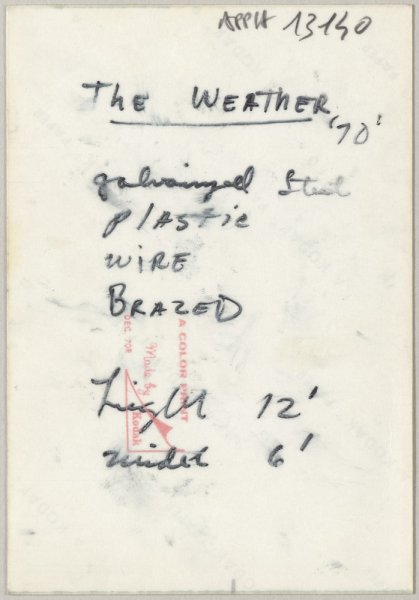 APPH 13140
The WEATHER
'70'
galvainzed Steel
plAStic
WIRE
BRAZED
A COLOR PRINT
DEC. 70R
Made by
Kodak
Hight 12'
widet 6'